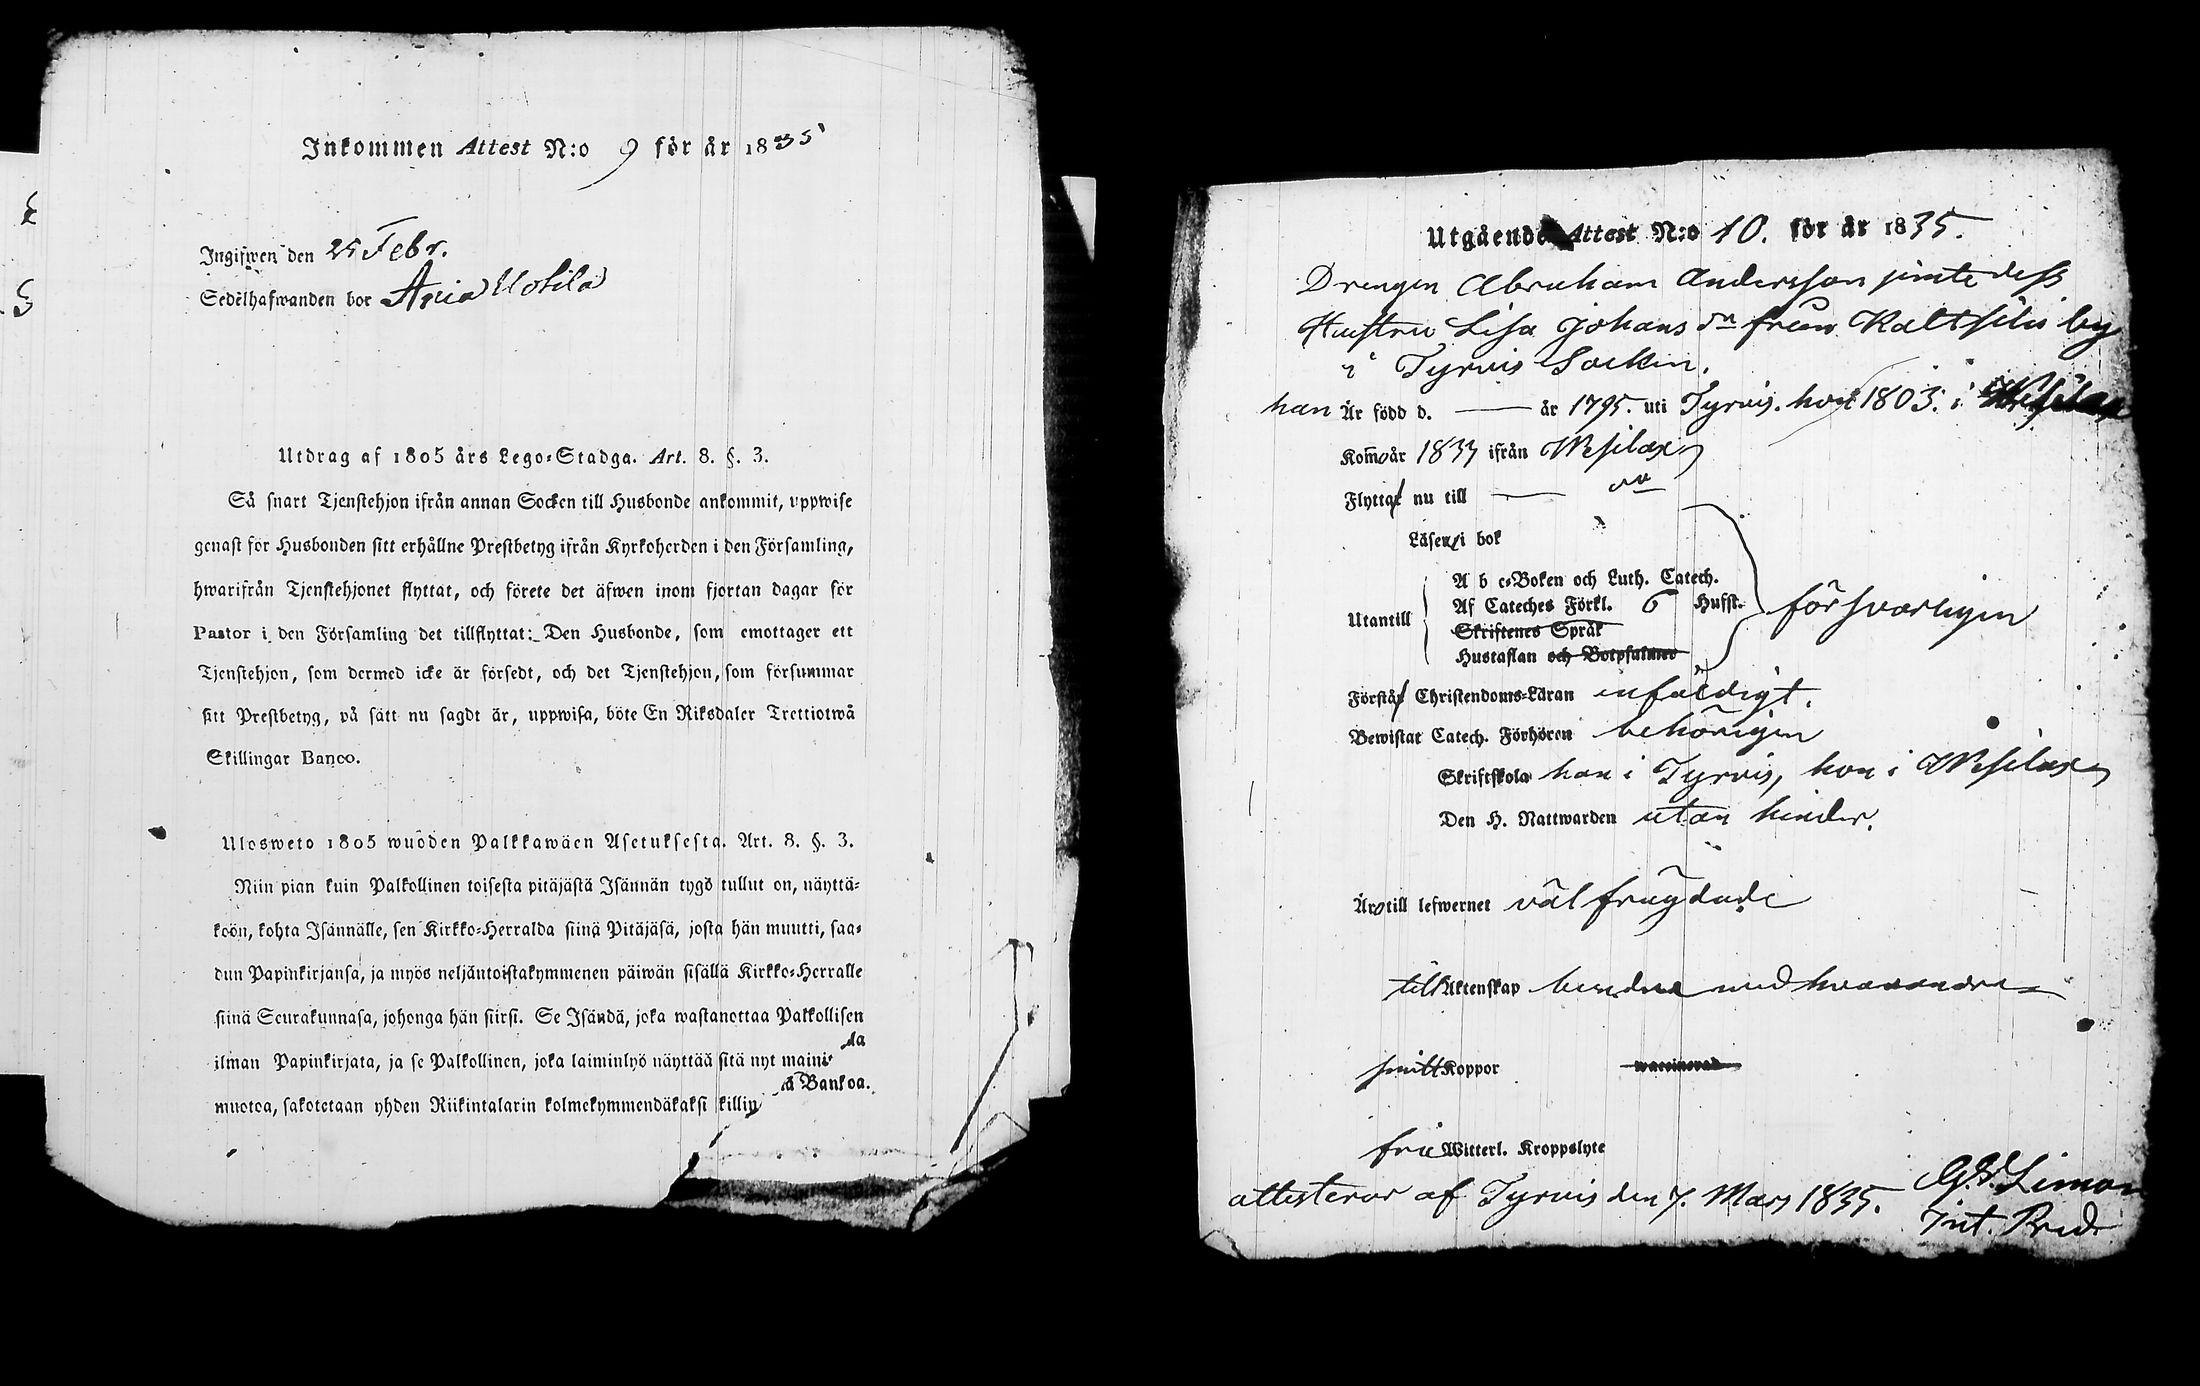 Inkommen Attest N:o 9 för år 1835
Ingifwen den 25 Febr.
Sedelhafwanden bor Ania Uotila
Utdrag af 1805 års Lego-Stadga. Art. 8. §. 3.
Så snart Tjenstehjon ifrån annan Socken till Husbonde ankommit, uppwise
genast för Husbonden sitt erhållne Prestbetyg ifrån Kyrkoherden i den Församling,
hwarifrån Tjenstehjonet flyttat, och förete det äfwen inom fjortan dagar för
Pastor i den Församling det tillflyttat: Den Husbonde, som emottager ett
Tjenstehjon, som dermed icke är försedt, och det Tjenstehjon, som försummar
sitt Prestbetyg, på sätt nu sagdt är, uppwisa, böte En Riksdaler Trettiotwå
Skillingar Banco.
Ulosweto 1805 wuoden Palkkawäen Asetuksesta. Art. 8. §. 3.
Niin pian kuin Palkollinen toisesta pitäjästä Isännän tygö tullut on, näyttä-
köön, kohta Isännälle, sen Kirkko-Herralda siinä Pitäjäsä, josta hän muutti, saa-
dun Papinkirjansa, ja myös neljäntoistakymmenen päiwän sisällä Kirkko-Herralle
siinä Seurakunnasa, johonga hän siirsi. Se Isändä, joka wastanottaa Palkollisen
ilman Papinkirjata, ja se Palkollinen, joka laiminlyö näyttää sitä nyt maini-
da
muotoa, sakotetaan yhden Riikintalarin kolmekymmendäkaksi killin
ä Bankoa.
Utgående Attest N:o 10. för år 1835.
Drengen Abraham Andersson jemte dess
Hustru Lisa Johans dn från Kaltsila by
i Tyrvis Socken.
han Är född d. — år 1795. uti Tyrvis. hon 1803. i Wesilax
Kom̄o år 1833 ifrån Wesilax
Flytta nu till —
Läsen i bok
Utantill
A b c-Boken och Luth. Catech.
Af Cateches Förkl. 6 Hufst.
Skriftenes Språk
Hustaflan och Botpsalmer
försvarligen
Förstå Christendoms-Läran enfaldigt.
Bewistat Catech. Förhören behörigen
Skriftskola han i Tyrvis, hon i Wesilax
Den H. Nattwarden utan hinder.
Äro till lefwernet väl frägdade
till Äktenskap bundna med hvarandra
haft Koppor waccinerad
fria Witterl. Kroppslyte
attesterar af Tyrvis den 7. Mars 1835.